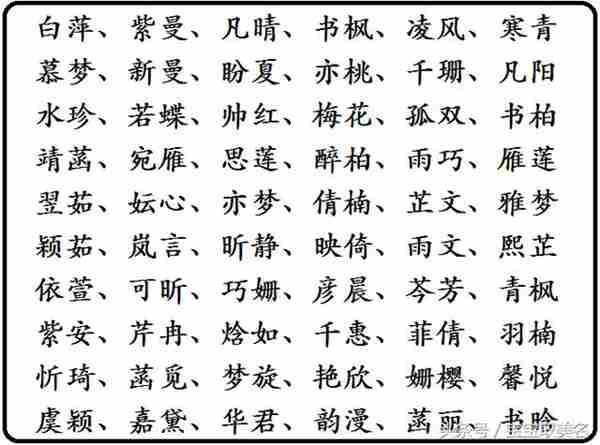 白萍、紫曼、凡晴、书枫、凌风、寒青
慕梦、新曼、盼夏、亦桃、千珊、凡阳
水珍、若蝶、帅红、梅花、孤双、书柏
靖菡、宛雁、思莲、醉柏、雨巧、雁莲
翌茹、妘心、亦梦、倩楠、芷文、雅梦
颖茹、岚言、昕静、映倚、雨文、熙芷
依萱、可昕、巧姗、彦晨、芩芳、青枫
紫安、芹冉、焓如、千惠、菲倩、羽楠
忻琦、菡觅、梦旋、艳欣、姗樱、馨悦
虞颖、嘉黛、华君、韵漫、菡丽、书晗
头条号/宝宝取美名